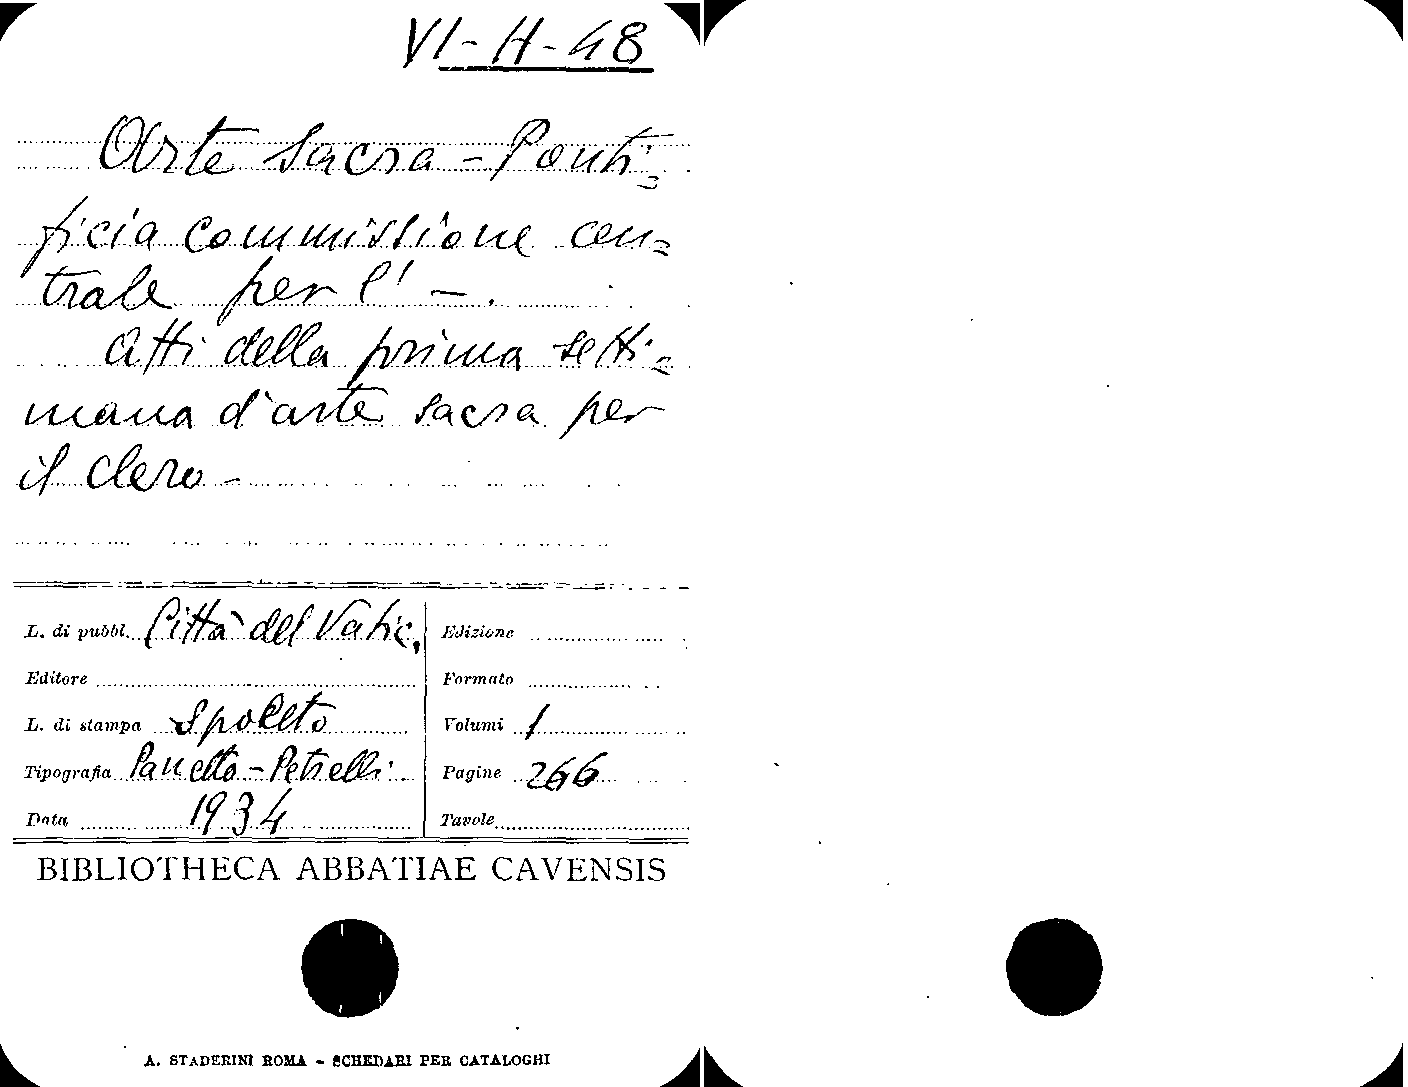 VI-H-48
Arte Sacra - Ponti=
ficia commissione cen=
trale per l' - .
Atti della prima setti=
mana d'arte sacra per
il clero -
L. di pubbl. Città del Vatic.
Edizione
Editore
Formato
L. di stampa Spoleto
Volumi 1
Tipografia Panetto - Petrelli
Pagine 266
Data 1934
Tavole
BIBLIOTHECA ABBATIAE CAVENSIS
A. STADERINI ROMA - SCHEDARI PER CATALOGHI